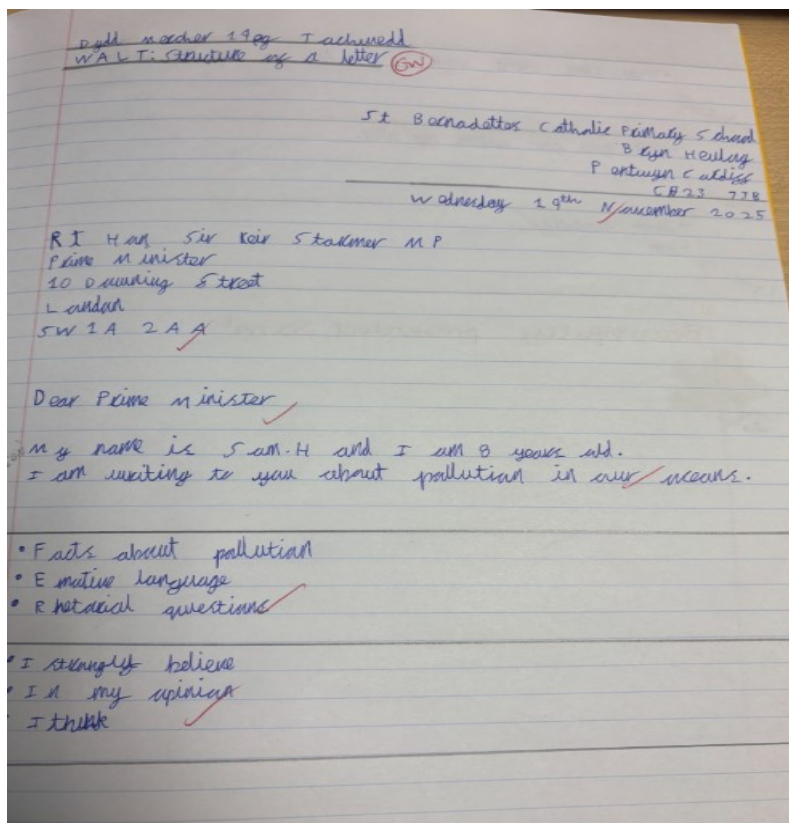 Dydd Mercher 19eg Tachwedd
WALT: Structure of a letter GW
St Bernadettes Catholic Primary School
Bryn Heulog
Pentwyn Cardiff
CF23 7JB
Wednesday 19th November 2025
Rt Hon Sir Keir Starmer MP
Prime Minister
10 Downing Street
London
SW1A 2AA
Dear Prime Minister
My name is Sam.H and I am 8 years old.
I am writing to you about pollution in our oceans.
• Facts about pollution
• Emotive language
• Rhetorical questions
• I strongly believe
• In my opinion
• I think